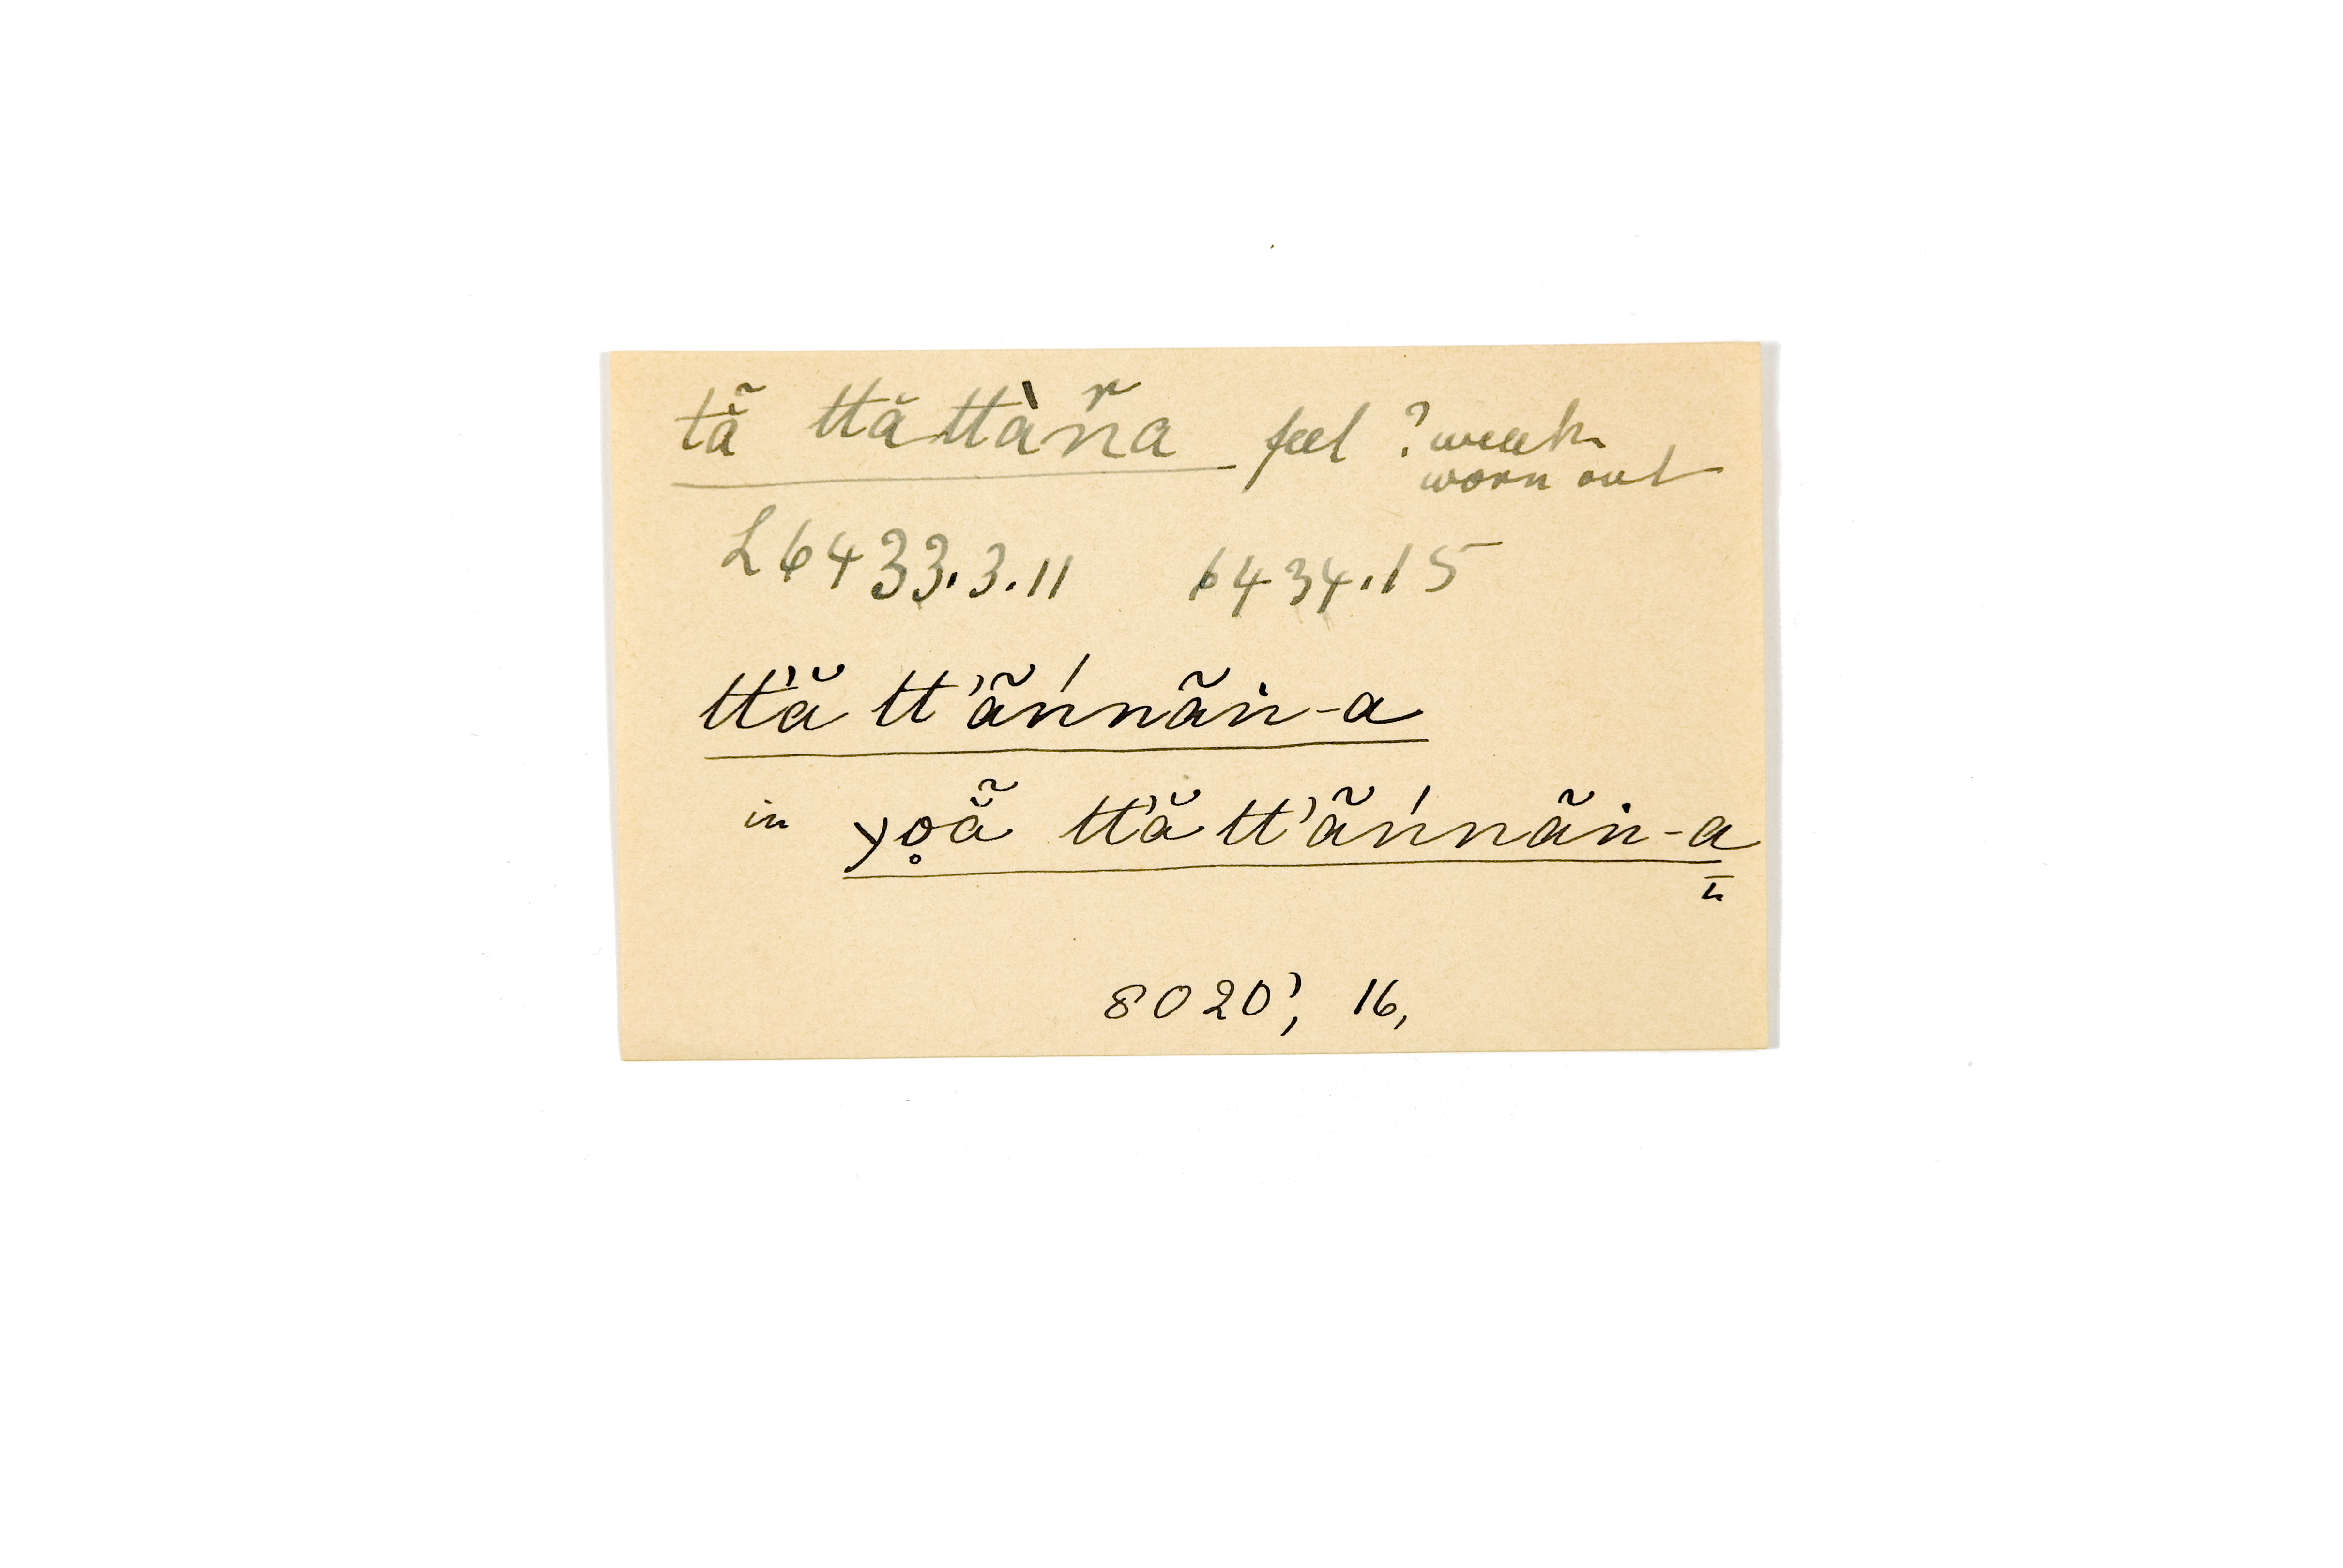 tä̃ ttă ttàr̃a feel ? weak
worn out
L 6433.3.11 6434.15
tt'ă tt'ãńnãin-a
in yo̥ä̃ tt'ă tt'ãńnãin-a
8020', 16,